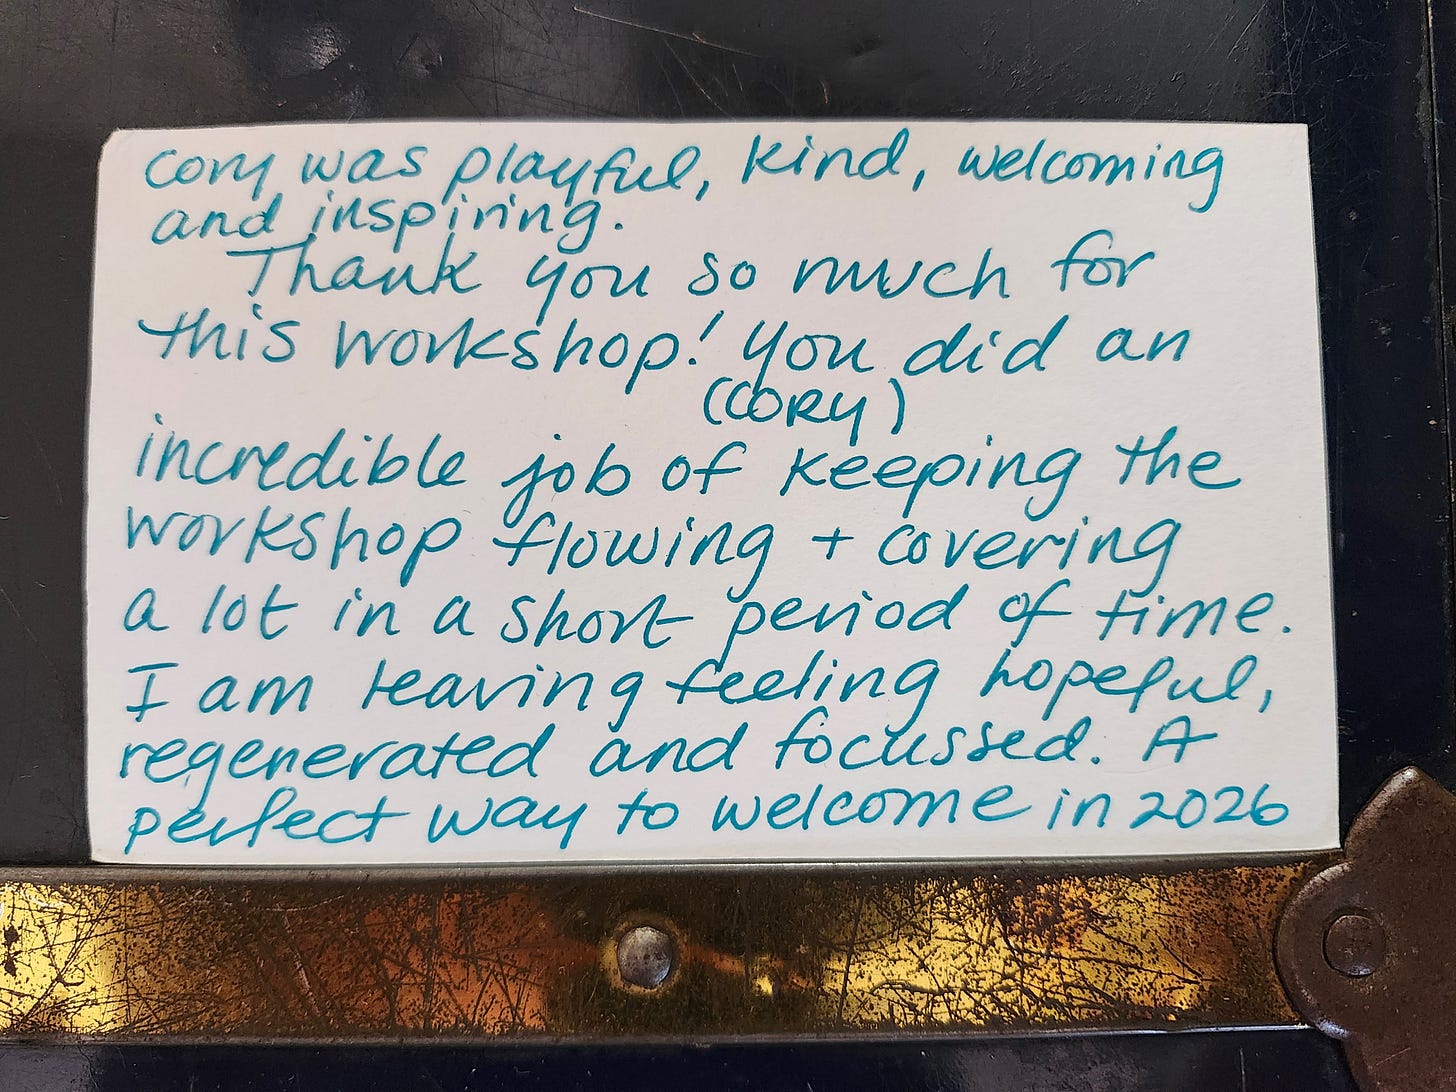 Cory was playful, kind, welcoming
and inspiring.
Thank you so much for
this workshop! You did an
(CORY)
incredible job of keeping the
workshop flowing + covering
a lot in a short period of time.
I am leaving feeling hopeful,
regenerated and focussed. A
perfect way to welcome in 2026